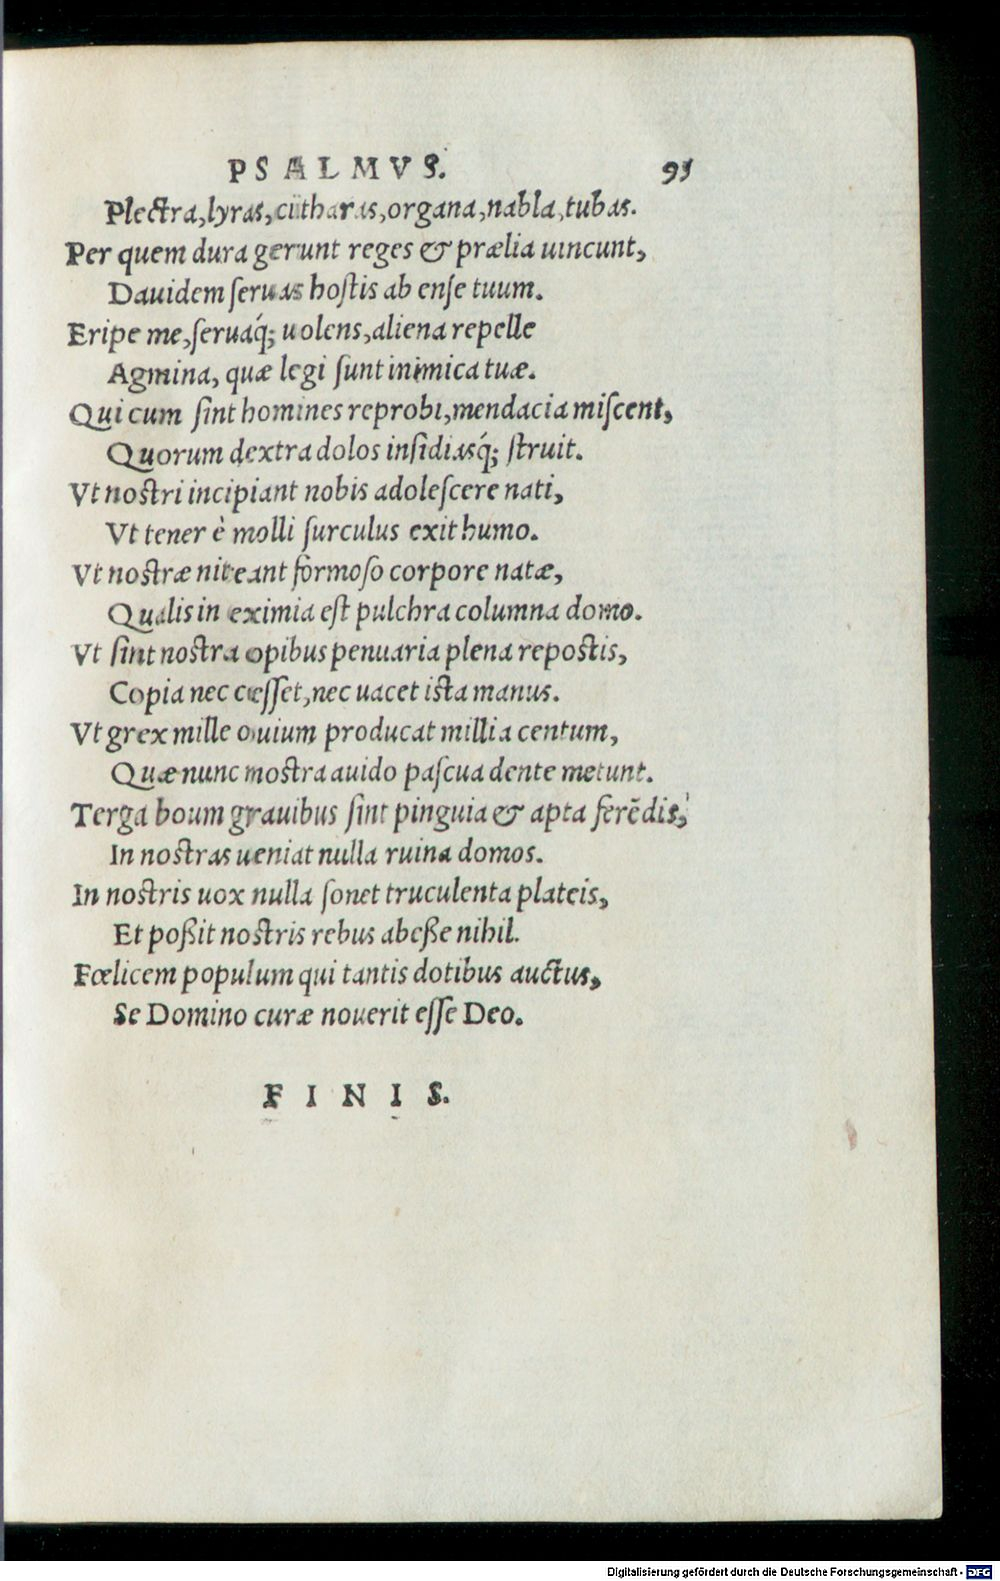 PSALMVS. 95
Plectra, lyras, citharas, organa, nabla, tubas.
Per quem dura gerunt reges & prælia uincunt,
Dauidem seruas hostis ab ense tuum.
Eripe me, seruaq́; uolens, aliena repelle
Agmina, quæ legi sunt inimica tuæ.
Qui cum sint homines reprobi, mendacia miscent,
Quorum dextra dolos insidiasq́; struit.
Vt nostri incipiant nobis adolescere nati,
Vt tener è molli surculus exit humo.
Vt nostræ niteant formoso corpore natæ,
Qualis in eximia est pulchra columna domo.
Vt sint nostra opibus penuaria plena repostis,
Copia nec cesset, nec uacet ista manus.
Vt grex mille ouium producat millia centum,
Quæ nunc nostra auido pascua dente metunt.
Terga boum grauibus sint pinguia & apta ferẽdis,
In nostras ueniat nulla ruina domos.
In nostris uox nulla sonet truculenta plateis,
Et poßit nostris rebus abeße nihil.
Fœlicem populum qui tantis dotibus auctus,
Se Domino curæ nouerit esse Deo.
FINIS.
Digitalisierung gefördert durch die Deutsche Forschungsgemeinschaft - DFG